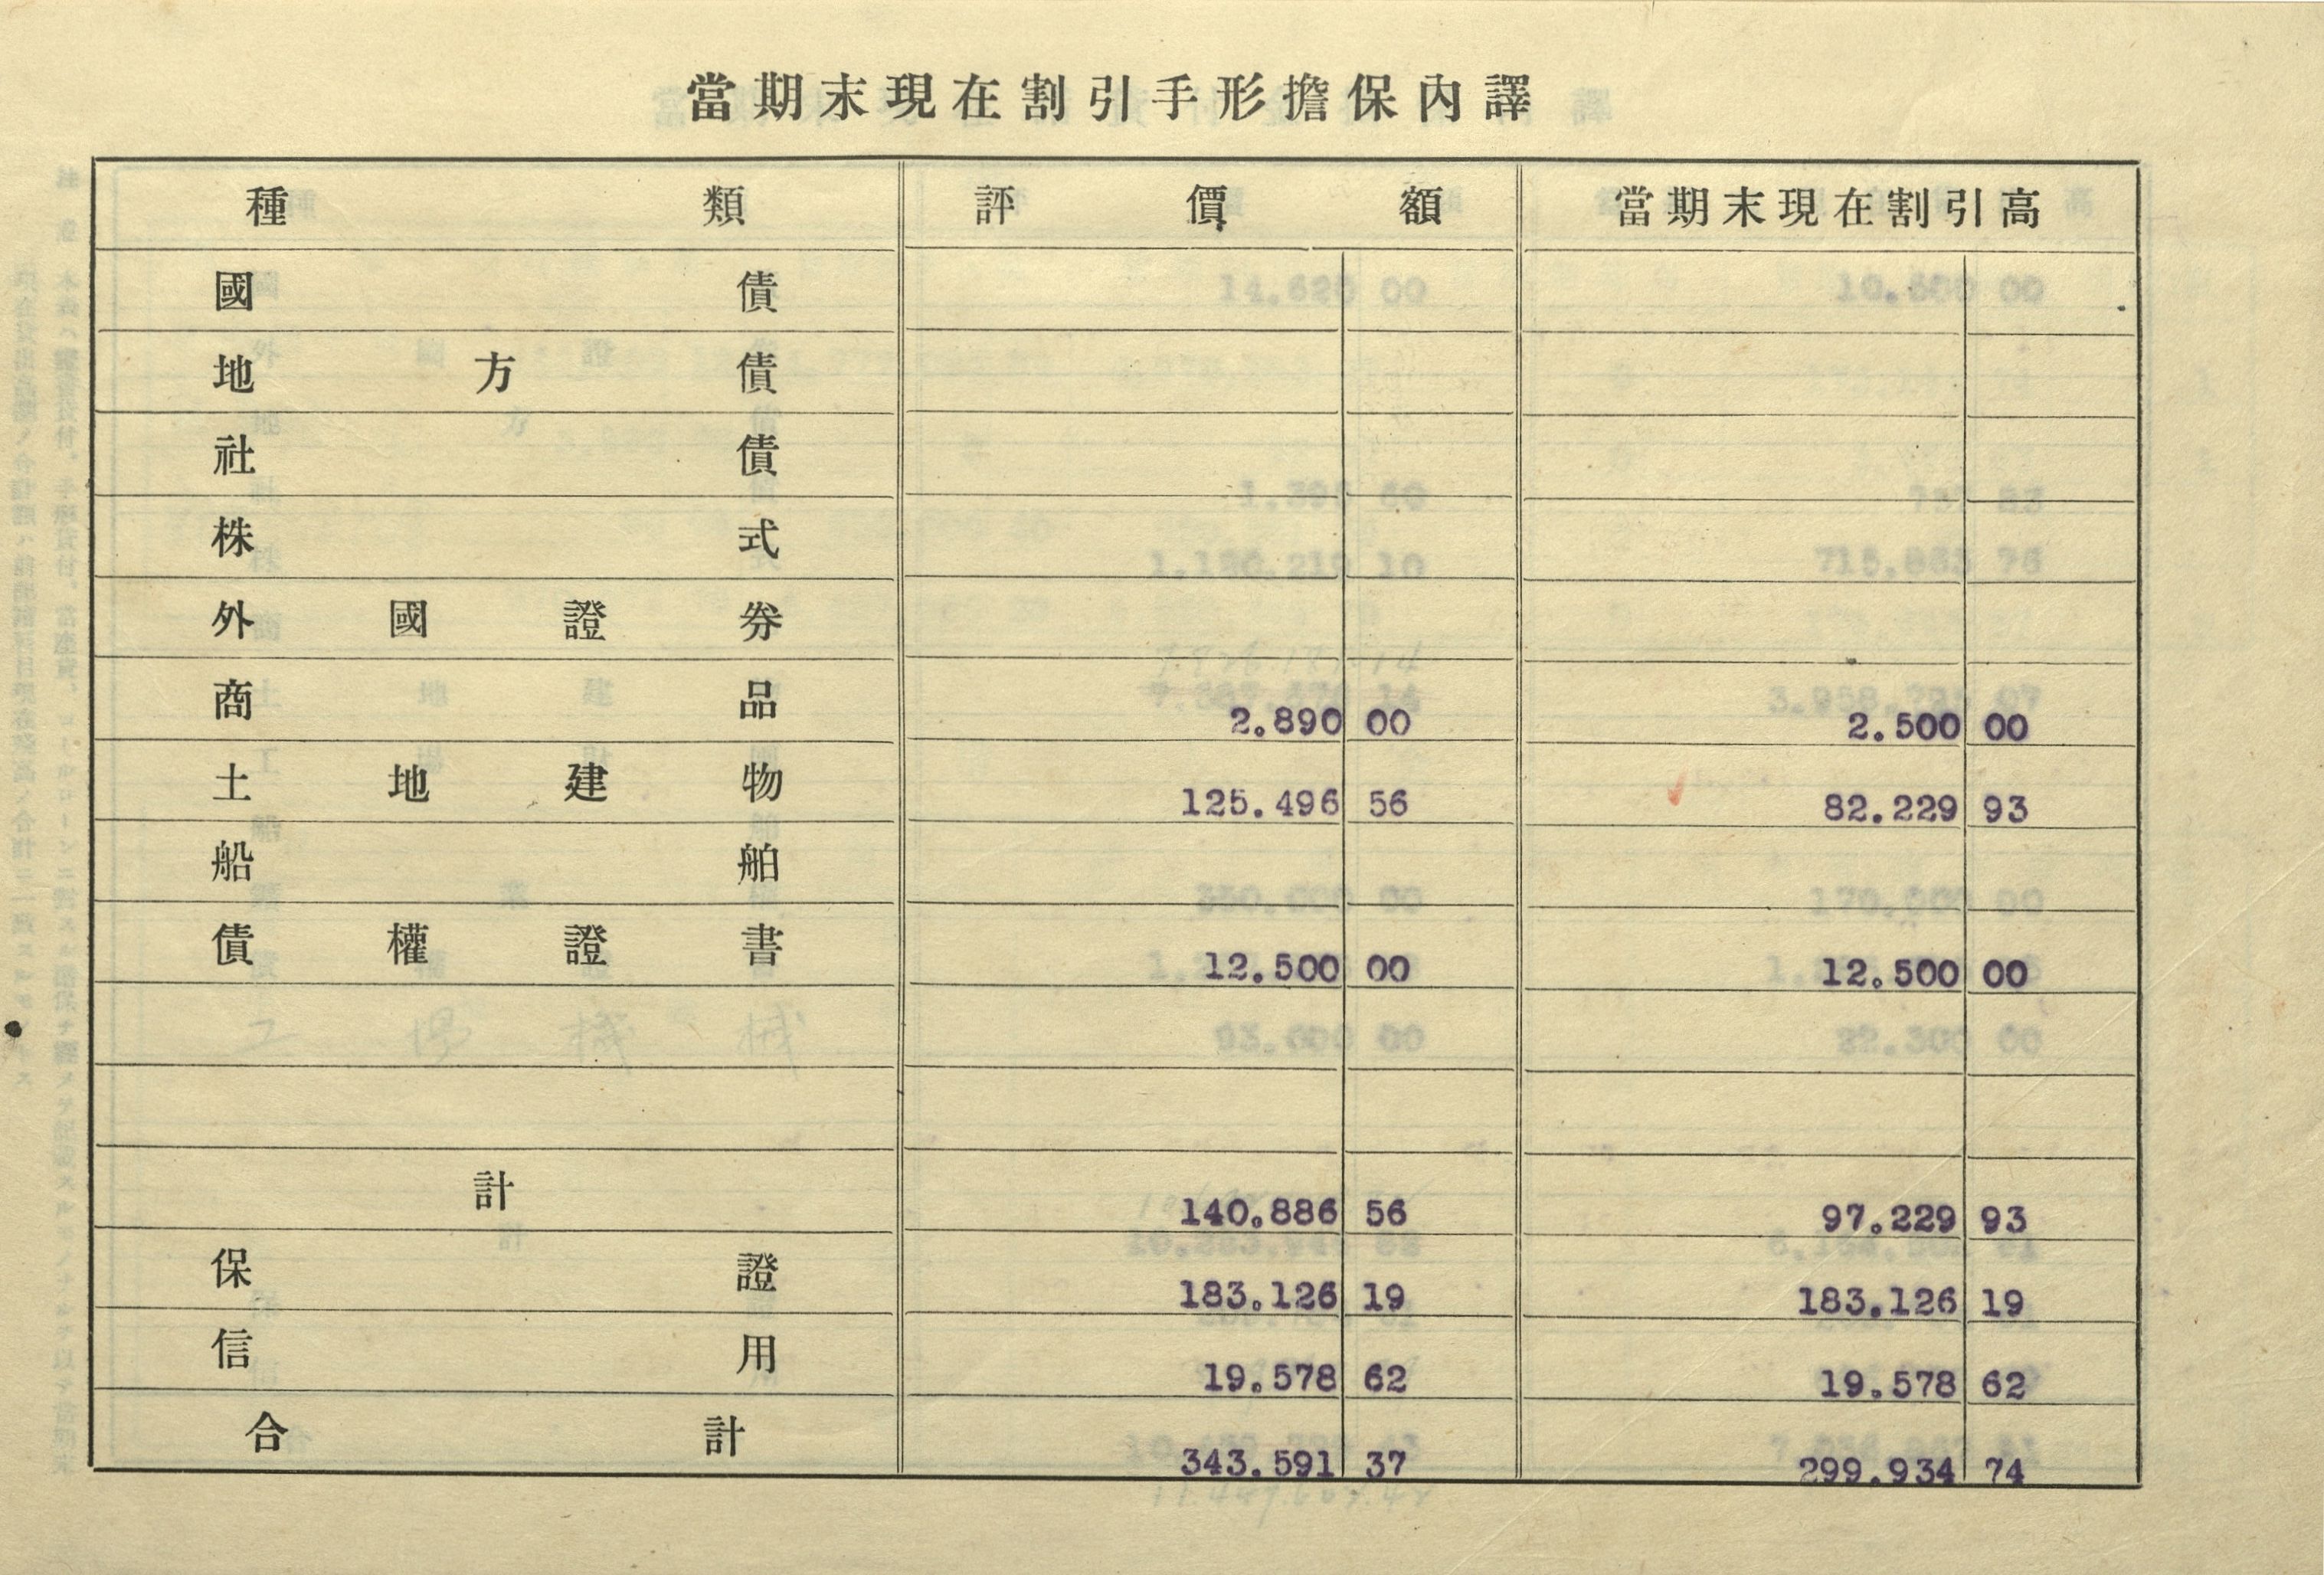 當期末現在割引手形擔保內譯
種類 評價額 當期末現在割引高
國債
地方債
社債
株式
外國證券
商品 2.890 00 2.500 00
土地建物 125.496 56 82.229 93
船舶
債權證書 12.500 00 12.500 00
計 140.886 56 97.229 93
保證 183.126 19 183.126 19
信用 19.578 62 19.578 62
合計 343.591 37 299.934 74